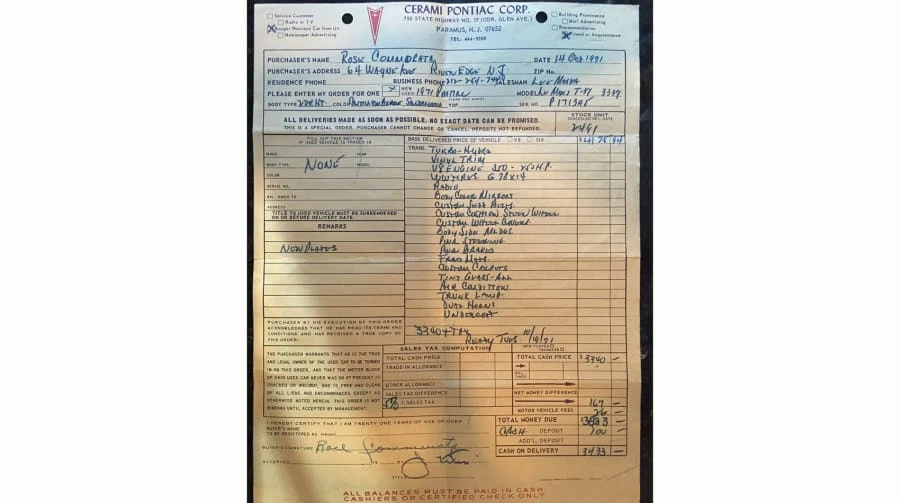 CERAMI PONTIAC CORP.
750 STATE HIGHWAY NO. 17 (COR. GLEN AVE.)
PARAMUS, N.J. 07652
TEL. 444-9200
Service Customer
Radio or T V
Bought Previous Car from Us
Newspaper Advertising
Building Prominence
Mail Advertising
Recommendation
Friend or Acquaintance
PURCHASER'S NAME Rose Commorata DATE 14 Oct 1971
PURCHASER'S ADDRESS 64 Wayne Ave River Edge N.J. ZIP No.
RESIDENCE PHONE BUSINESS PHONE SALESMAN
PLEASE ENTER MY ORDER FOR ONE NEW USED 1971 Pontiac MODEL Le Mans T-37 3337
BODY TYPE 2DR HT COLOR TOP SER. NO. P171345
ALL DELIVERIES MADE AS SOON AS POSSIBLE. NO EXACT DATE CAN BE PROMISED.
THIS IS A SPECIAL ORDER. PURCHASER CANNOT CHANGE OR CANCEL. DEPOSITS NOT REFUNDED.
STOCK UNIT
SCHEDULED DEL. DATE
2491
FILL OUT THIS SECTION
IF USED VEHICLE IS TRADED IN
NAME YEAR
BODY TYPE NONE MODEL
COLOR
SERIAL NO.
BAL. OWED TO
ADDRESS
TITLE TO USED VEHICLE MUST BE SURRENDERED
ON OR BEFORE DELIVERY DATE.
REMARKS
New Plates
BASE DELIVERED PRICE OF VEHICLE V8 SIX 4175 94
TRANS. Turbo-Hydra
Vinyl Trim
V8 Engine 350 - 250 H.P.
WW Tires G78x14
Radio
Body Color Mirrors
Custom Seat Belts
Custom Cushion Steer Wheel
Custom Wheel Covers
Body Side Mldgs
Pwr Steering
Pwr Brakes
Frnt Mats
Custom Carpets
Tint Glass-All
Air Condition
Trunk Lamp
Dual Horns
Undercoat
3340 + Tax
Ready Tues. 10/19/71
PURCHASER BY HIS EXECUTION OF THIS ORDER
ACKNOWLEDGES THAT HE HAS READ ITS TERMS AND
CONDITIONS AND HAS RECEIVED A TRUE COPY OF
THIS ORDER.
SALES TAX COMPUTATION
TOTAL CASH PRICE
TRADE-IN ALLOWANCE
OTHER ALLOWANCE
SALES TAX DIFFERENCE
N. J. SALES TAX
TOTAL CASH PRICE 3340 —
BAL. OWED
NET MONEY DIFFERENCE
167 —
MOTOR VEHICLE FEES 26 —
TOTAL MONEY DUE 3533 —
CASH DEPOSIT 100 —
ADD'L. DEPOSIT
CASH ON DELIVERY 3433 —
THE PURCHASER WARRANTS THAT HE IS THE TRUE
AND LEGAL OWNER OF THE USED CAR TO BE TURNED
IN ON THIS ORDER, AND THAT THE MOTOR BLOCK
OF SAID USED CAR NEVER WAS OR AT PRESENT IS
CRACKED OR WELDED, AND IS FREE AND CLEAR
OF ALL LIENS AND ENCUMBRANCES, EXCEPT AS
OTHERWISE NOTED HEREIN. THIS ORDER IS NOT
BINDING UNTIL ACCEPTED BY MANAGEMENT.
I HEREBY CERTIFY THAT I AM TWENTY ONE YEARS OF AGE OR OVER
BUYER'S NAME
TO BE REGISTERED AS (PRINT)
BUYER'S SIGNATURE Rose
ACCEPTED BY
TITLE
ALL BALANCES MUST BE PAID IN CASH,
CASHIERS OR CERTIFIED CHECK ONLY